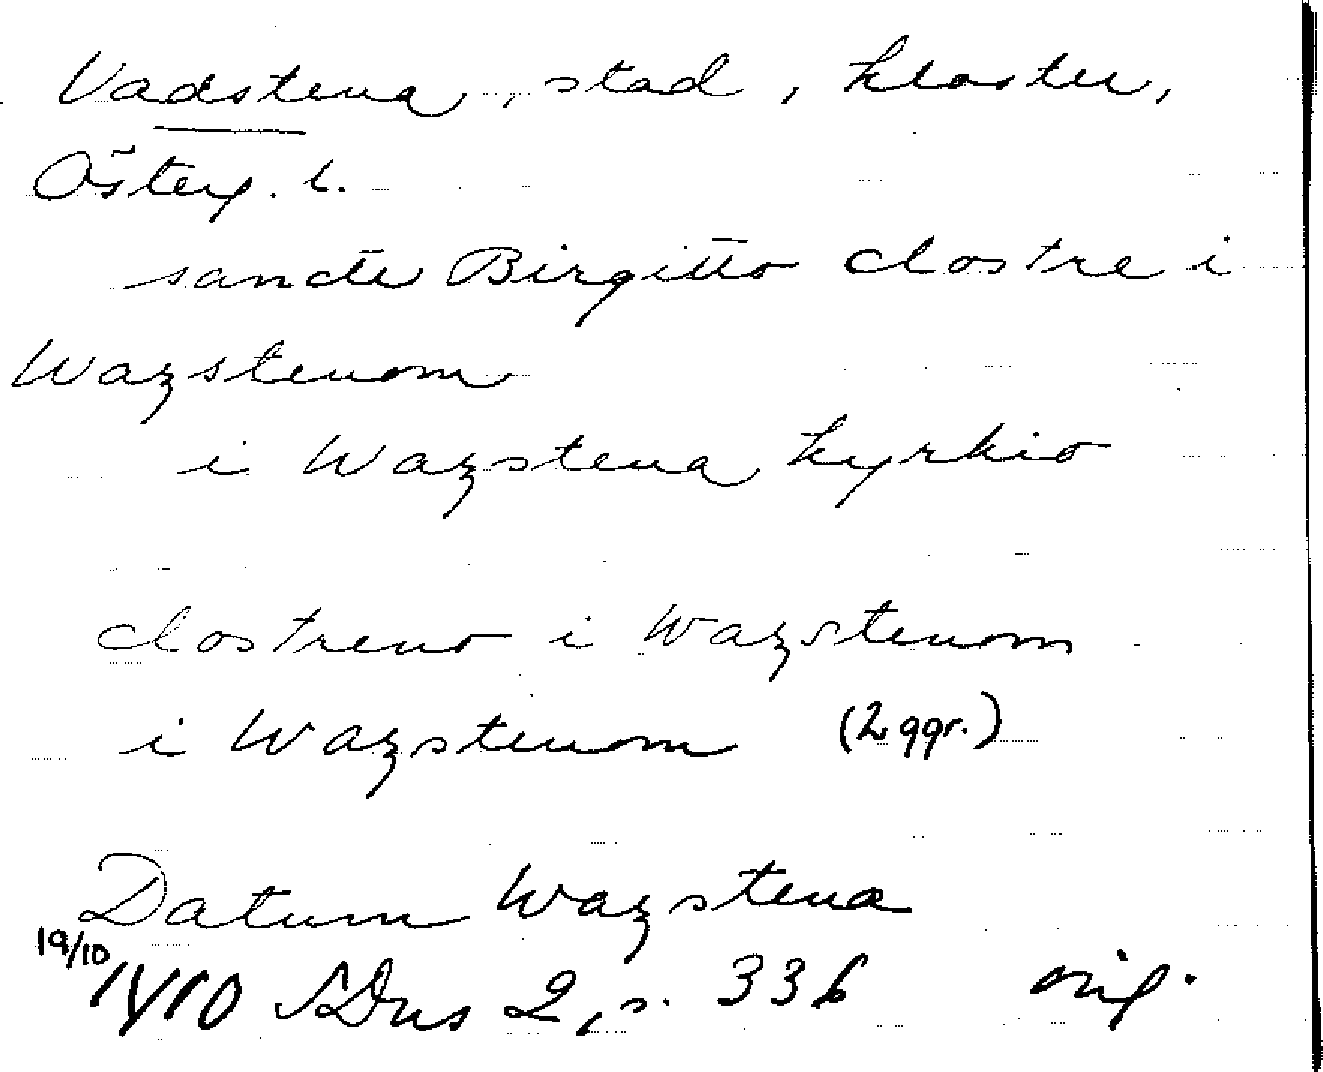 Vadstena, stad, kloster,
Österg. l.
sancte Birgitto clostre i
Wazstenom
i Wazstena kyrkio
clostreno i Wazstenom
i Wazstenom (2 ggr.)
Datum Wazstena
19/10 1410 SDns 2, s. 336 orig.